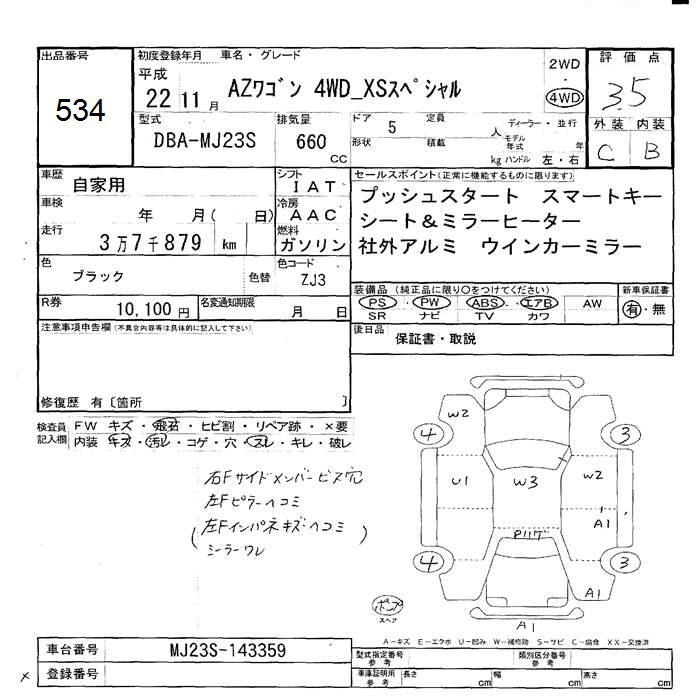 出品番号 534
初度登録年月 車名・グレード
平成 22 11 月 AZワゴン 4WD_XSスペシャル
2WD
4WD
評価点
35
外装 内装
C B
型式 DBA-MJ23S
排気量 660 CC
ドア 5 定員 人
形状 積載 kg
ディーラー・並行
モデル年式 年
ハンドル 左・右
車歴 自家用
シフト IAT
車検 年 月( 日)
冷房 AAC
走行 3万7千879 km
燃料 ガソリン
色 ブラック 色替
色コード ZJ3
R券 10,100円 名変通知期限 月 日
セールスポイント(正常に機能するものに限ります)
プッシュスタート スマートキー
シート&ミラーヒーター
社外アルミ ウインカーミラー
装備品(純正品に限り○をつけてください)
新車保証書
PS PW ABS エアB AW 有・無
SR ナビ TV カワ
後日品 保証書・取説
注意事項申告欄(不具合内容等は具体的に記入して下さい)
修復歴 有〔箇所 〕
検査員記入欄 FW キズ・飛石・ヒビ割・リペア跡・×要
内装 キズ・汚レ・コゲ・穴・スレ・キレ・破レ
右Fサイドメンバービス穴
左Fピラーヘコミ
(左Fインパネキズ・ヘコミ)
シーラーワレ
W2
4 3
U1 W3 W2
A1
Pリリグ
4 3
A1
A1
ポンプ
スペア
A-キズ E-エクボ U-凹み W-補修跡 S-サビ C-腐食 XX-交換済
車台番号 MJ23S-143359
× 登録番号
型式指定番号 参考 類別区分番号 参考
車庫証明用 参考 長さ cm 幅 cm 高さ cm